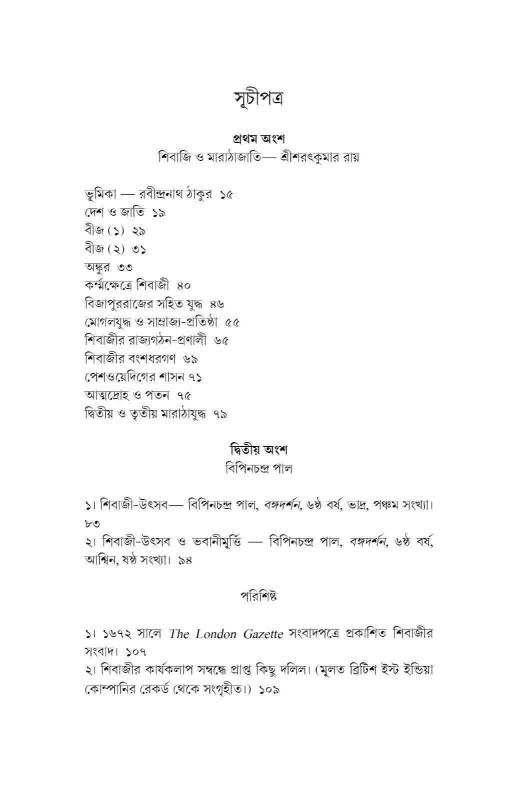 সূচীপত্র
প্রথম অংশ
শিবাজি ও মারাঠাজাতি— শ্রীশরৎকুমার রায়
ভূমিকা — রবীন্দ্রনাথ ঠাকুর ১৫
দেশ ও জাতি ১৯
বীজ (১) ২৯
বীজ (২) ৩১
অঙ্কুর ৩৩
কর্ম্মক্ষেত্রে শিবাজী ৪০
বিজাপুররাজের সহিত যুদ্ধ ৪৬
মোগলযুদ্ধ ও সাম্রাজ্য-প্রতিষ্ঠা ৫৫
শিবাজীর রাজ্যগঠন-প্রণালী ৬৫
শিবাজীর বংশধরগণ ৬৯
পেশওয়েদিগের শাসন ৭১
আত্মদ্রোহ ও পতন ৭৫
দ্বিতীয় ও তৃতীয় মারাঠাযুদ্ধ ৭৯
দ্বিতীয় অংশ
বিপিনচন্দ্র পাল
১। শিবাজী-উৎসব— বিপিনচন্দ্র পাল, বঙ্গদর্শন, ৬ষ্ঠ বর্ষ, ভাদ্র, পঞ্চম সংখ্যা।
৮৩
২। শিবাজী-উৎসব ও ভবানীমূর্ত্তি — বিপিনচন্দ্র পাল, বঙ্গদর্শন, ৬ষ্ঠ বর্ষ,
আশ্বিন, ষষ্ঠ সংখ্যা। ৯৪
পরিশিষ্ট
১। ১৬৭২ সালে The London Gazette সংবাদপত্রে প্রকাশিত শিবাজীর
সংবাদ। ১০৭
২। শিবাজীর কার্যকলাপ সম্বন্ধে প্রাপ্ত কিছু দলিল। (মূলত ব্রিটিশ ইস্ট ইন্ডিয়া
কোম্পানির রেকর্ড থেকে সংগৃহীত।) ১০৯